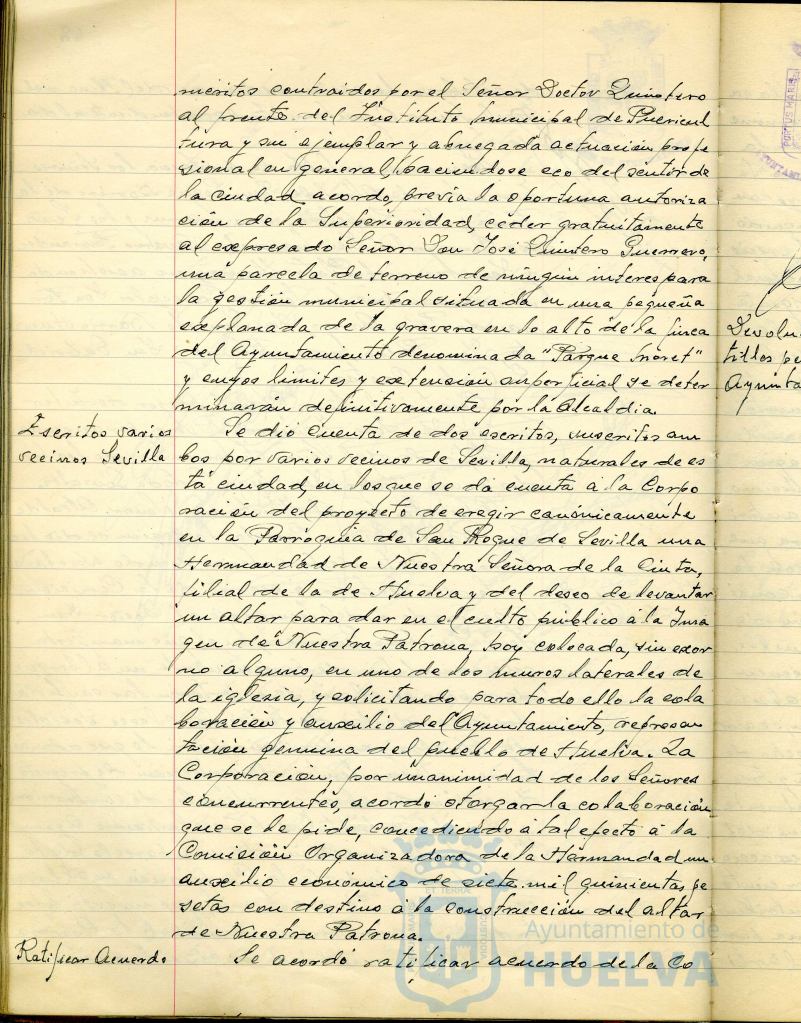 meritos contraidos por el Señor Doctor Quintero
al frente del Instituto municipal de Puericul
tura y su ejemplar y abnegada actuación profe
sional en general, haciendose eco del sentir de
la ciudad acordo, previa la oportuna autoriza
ción de la Superioridad, ceder gratuitamente
al expresado Señor Don José Quintero Guerrero,
una parcela de terreno de ningun interes para
la gestión municipal situada en una pequeña
explanada de la gravera en lo alto de la finca
del Ayuntamiento denominada "Parque Moret"
y cuyos limites y extensión superficial se deter
minarán definitivamente por la Alcaldia.
Escritos varios
vecinos Sevilla
Se dió cuenta de dos escritos, suscritos am
bos por varios vecinos de Sevilla, naturales de es
ta ciudad, en los que se dá cuenta á la Corpo
ración del proyecto de eregir canónicamente
en la Parroquia de San Roque de Sevilla una
Hermandad de Nuestra Señora de la Cinta,
filial de la de Huelva y del deseo de levantar
un altar para dar en el culto público á la Ima
gen de Nuestra Patrona, hoy colocada, sin exor
no alguno, en uno de los muros laterales de
la iglesia, y solicitando para todo ello la cola
boración y auxilio del Ayuntamiento, represen
tación genuina del pueblo de Huelva. La
Corporación, por unanimidad de los Señores
concurrentes, acordó otorgar la colaboración
que se le pide, concediendo á tal efecto á la
Comisión Organizadora de la Hermandad un
auxilio económico de siete mil quinientas pe
setas con destino á la construcción del altar
de Nuestra Patrona.
Ratificar Acuerdo
Se acordó ratificar acuerdo de la Co
Devolu
tillos pe
Ayunta
PORTUS MARIS
Ayuntamiento de
HUELVA